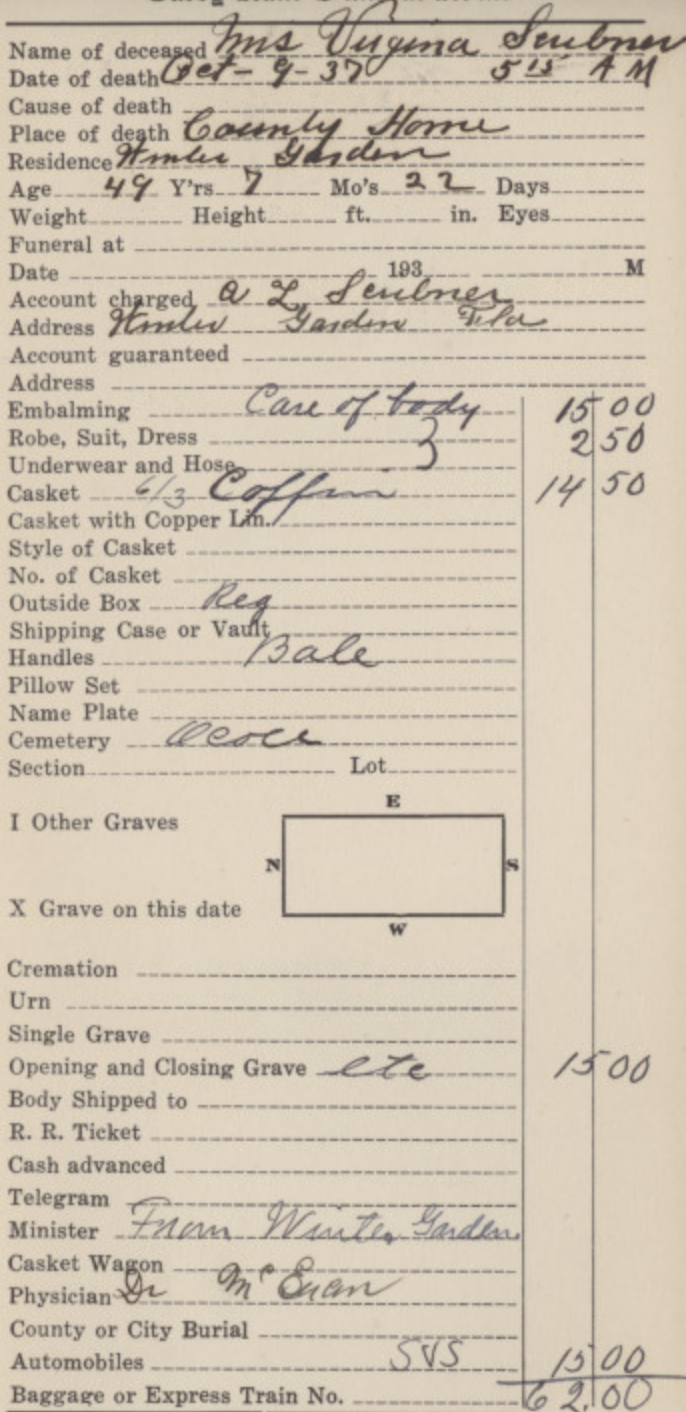 Name of deceased Mrs Virgina Scribner
Date of death Oct - 9 - 37 5 15 A M
Cause of death
Place of death County Home
Residence Winter Garden
Age 49 Y'rs 7 Mo's 22 Days
Weight Height ft. in. Eyes
Funeral at
Date 193 M
Account charged A L Scribner
Address Winter Garden Fla
Account guaranteed
Address
Embalming Care of body 15 00
Robe, Suit, Dress } 2 50
Underwear and Hose
Casket 6/3 Coffin 14 50
Casket with Copper Lin.
Style of Casket
No. of Casket
Outside Box Reg
Shipping Case or Vault
Handles Bale
Pillow Set
Name Plate
Cemetery Ocoee
Section Lot
E
I Other Graves
N S
X Grave on this date
W
Cremation
Urn
Single Grave
Opening and Closing Grave etc 15 00
Body Shipped to
R. R. Ticket
Cash advanced
Telegram
Minister From Winter Garden
Casket Wagon
Physician Dr McEwan
County or City Burial
Automobiles SVS 15 00
Baggage or Express Train No. 62.00